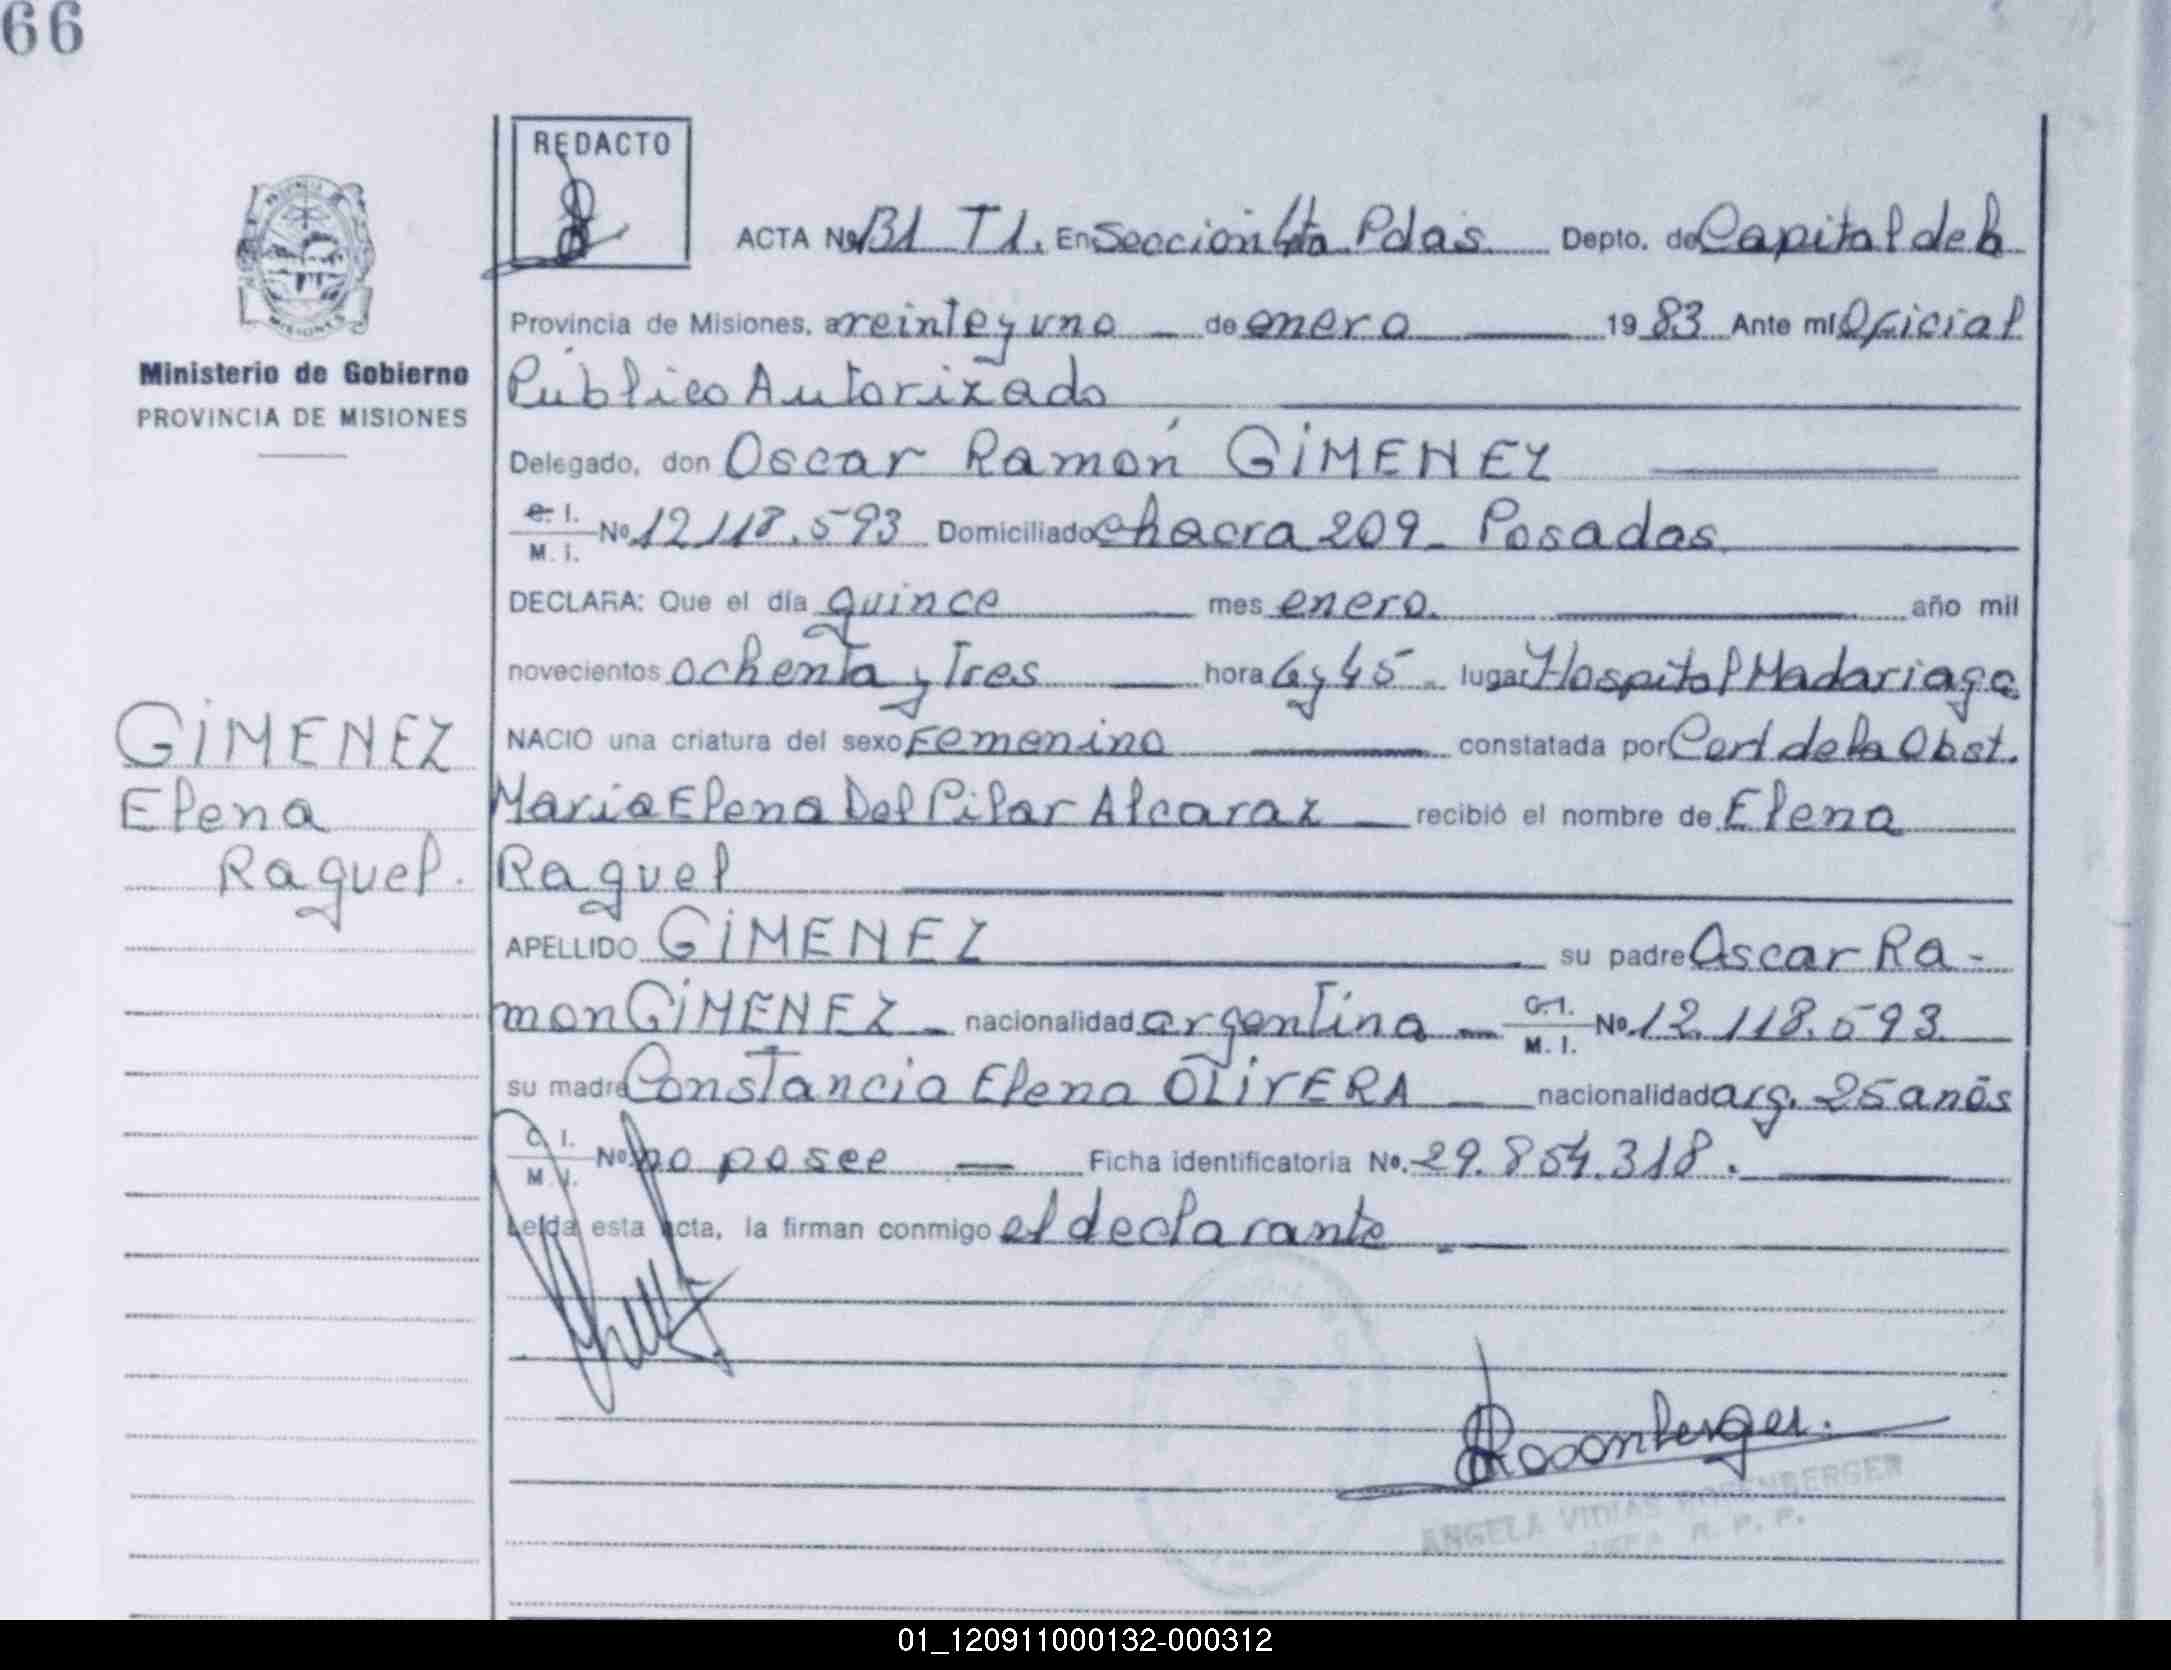 66
REDACTO
ACTA No 131 T1. En Seccion 4ta Pdas. Depto. de Capital de la
Provincia de Misiones, a veinte y uno de enero 1983 Ante mí Oficial
Público Autorizado
Ministerio de Gobierno
PROVINCIA DE MISIONES
MISIONES
Delegado, don Oscar Ramón GIMENEZ
C. I.
M. I. No 12.118.593 Domiciliado chacra 209 - Posadas
DECLARA: Que el día quince mes enero. año mil
novecientos ochenta y Tres hora 6 y 45 - lugar Hospital Madariaga
NACIO una criatura del sexo Femenino constatada por Cert de la Obst.
Maria Elena Del Pilar Alcaraz recibió el nombre de Elena
Raquel
GIMENEZ
Elena
Raquel.
APELLIDO GIMENEZ su padre Oscar Ra-
mon GIMENEZ - nacionalidad argentina - C.I.
M. I. No 12.118.593.
su madre Constancia Elena OLIVERA nacionalidad arg. 25 años
C. I.
M. I. No no posee Ficha identificatoria No. 29.854.318.
Leída esta acta, la firman conmigo el declarante
Rosenberger.
ANGELA VIDIAS ROSENBERGER
JEFA R. P. P.
01_120911000132-000312